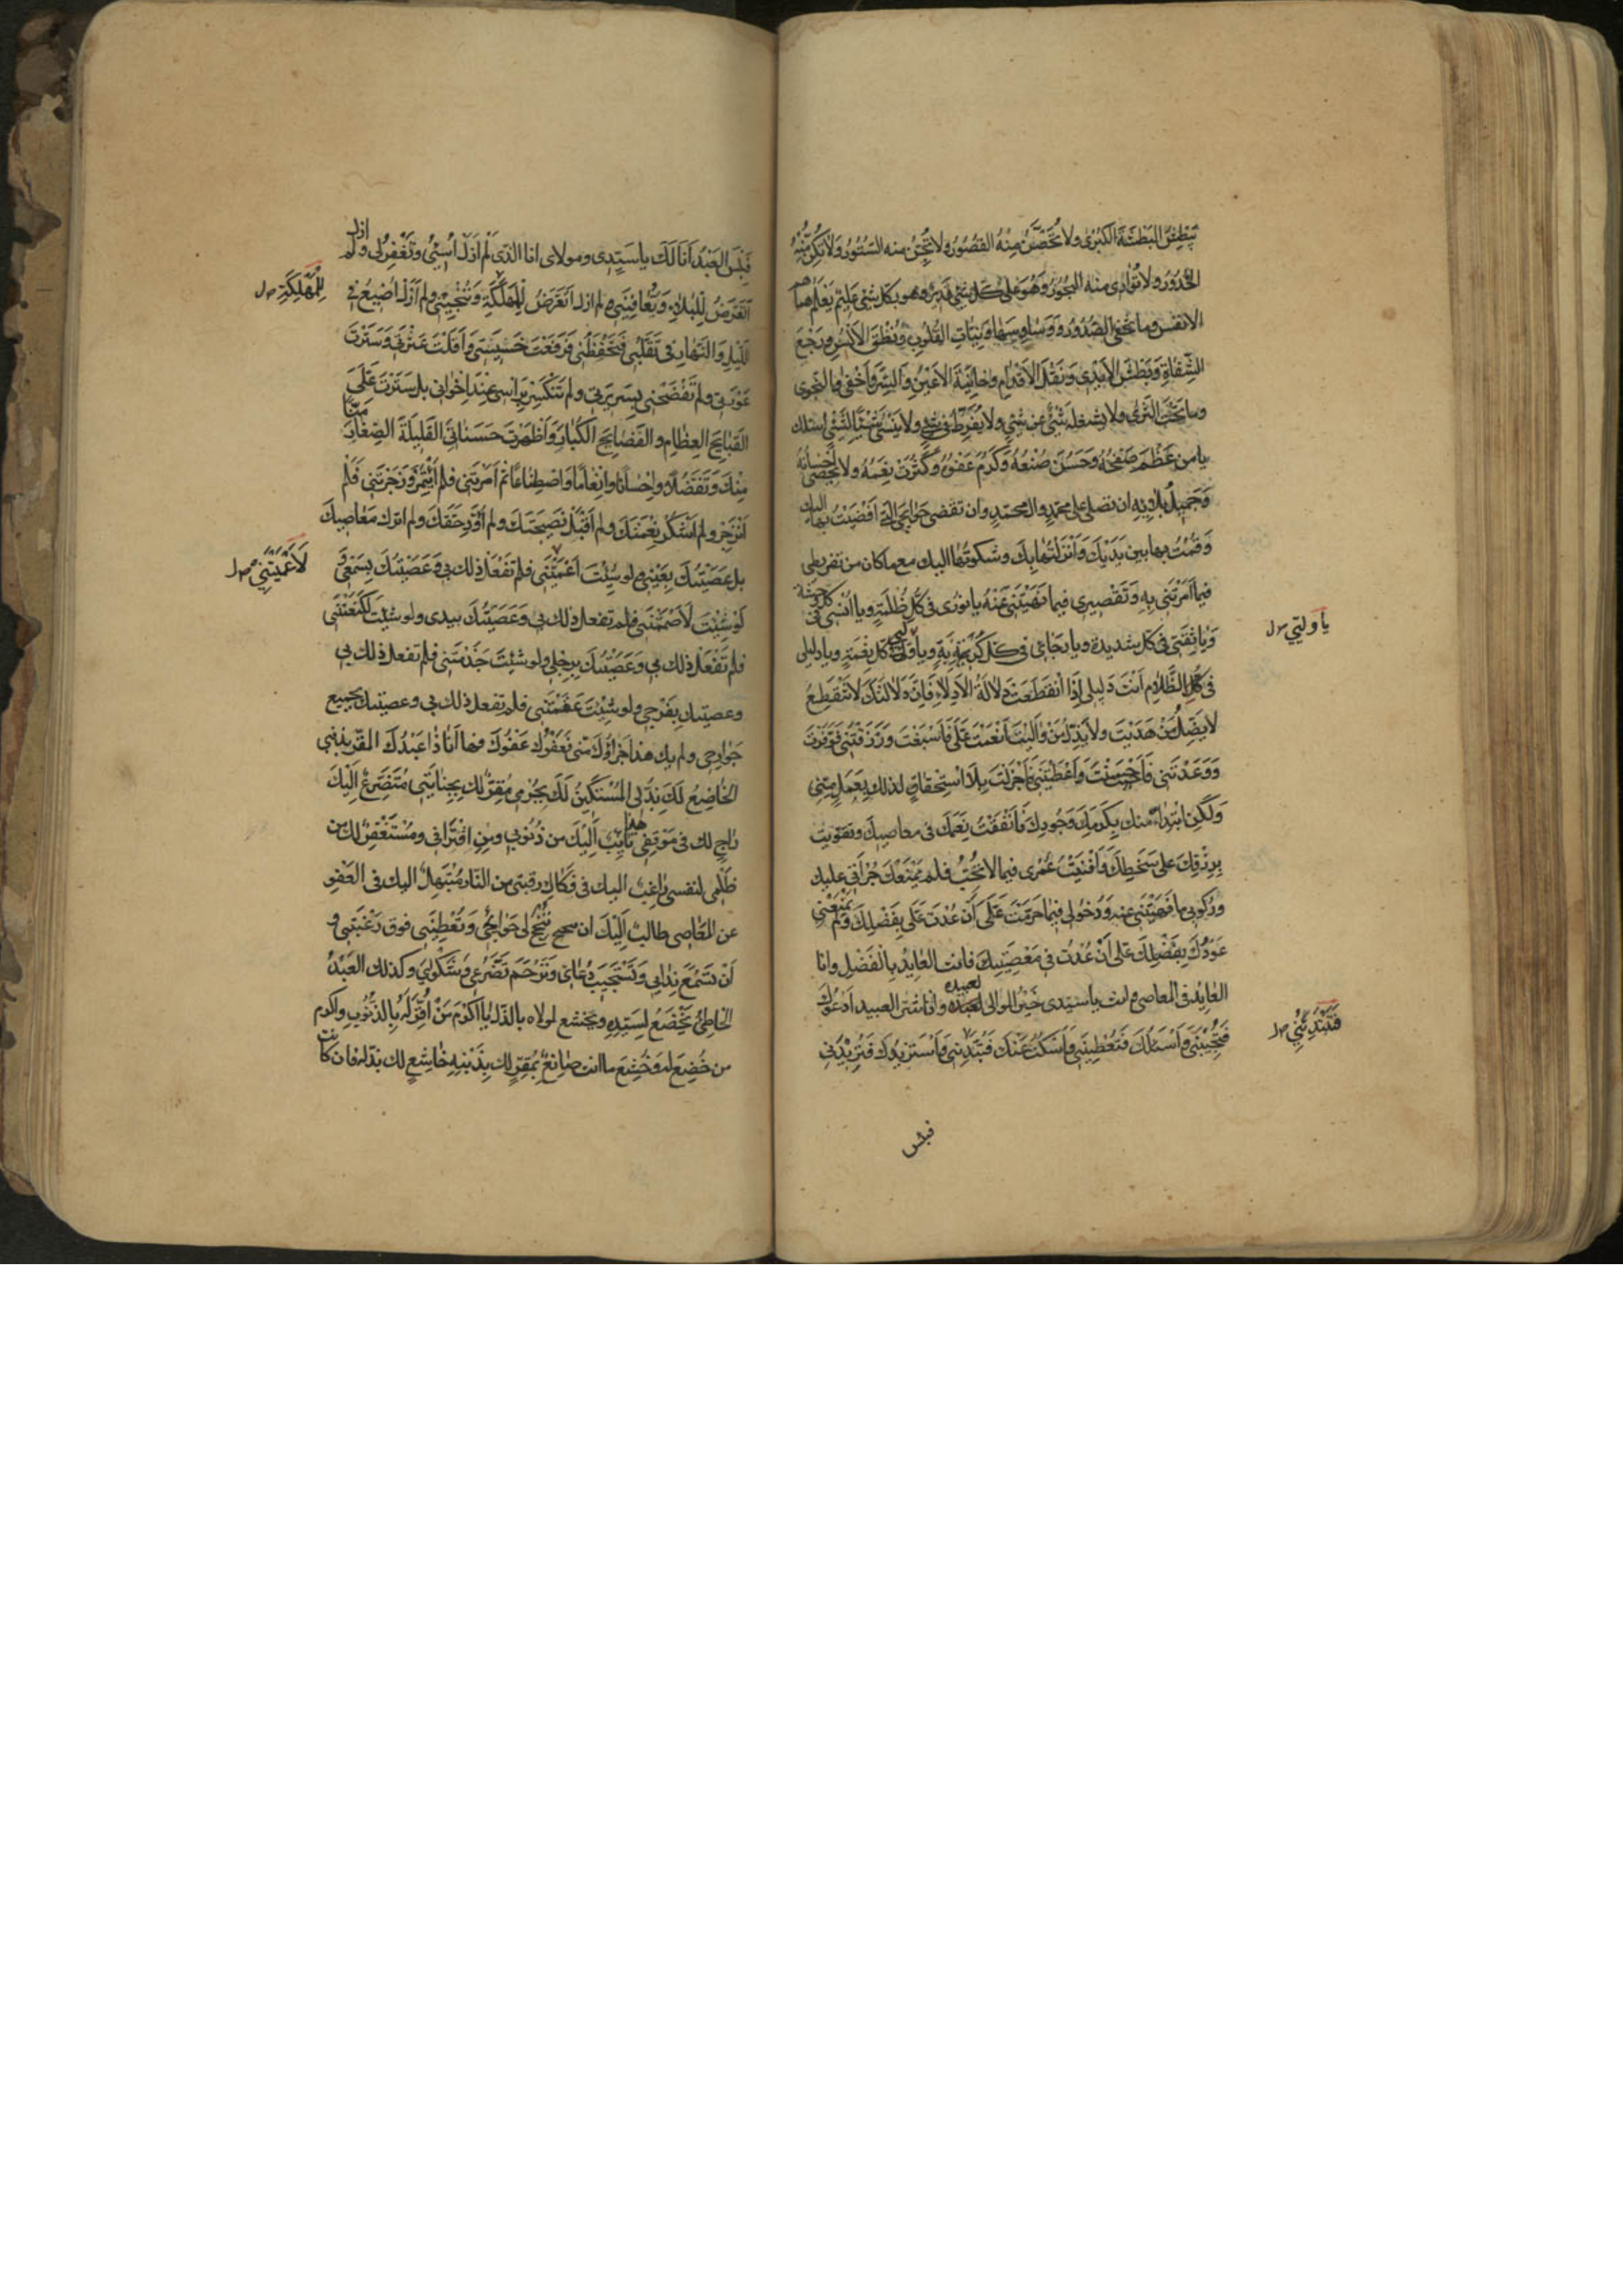 يَبْطِشُ البَطْشَةَ الكُبْرىٰ ولا تُحَصِّنُ مِنْهُ القصُورُ ولا تُجِنُّ منه السُّتُورُ وَلا تَكِنُّ مِنْهُ
الخُدُورُ ولا تُوٰارى منه البُحُورُ وَهُوَ عَلىٰ كلّ شَيْءٍ قَديرٌ وهو بكلّ شئ عَليمٌ يَعْلَمُ هَمٰاهِمَ
الانفس وما تخفى الصُّدُورُ وَوَسٰاوِسَهٰا وَنِيّٰاتِ القُلُوبِ وَنُطْقَ الاَلْسُنِ وَرَجْعَ
الشِّفٰاهِ وَبَطْشَ الاَيْدى وَنَقْلَ الاَقْدٰامِ وخٰائِنَةَ الاَعْيُنِ والسِّرَّ وَاَخْفىٰ والنَّجوى
وما تَحْتَ الثَّرىٰ ولا يشغله شَئٌ عن شَئٍ ولا يُفَرِّطُ فى شَئٍ ولا يَنْسىٰ شَيْئًا لِشَئٍ اسئلك
يا من عَظُمَ صَفْحُهُ وَحَسُنَ صُنْعُهُ وَكَرُمَ عَفْوُهُ وَكَثُرَتْ نِعَمُهُ ولا يُحْصىٰ اِحْسٰانُهُ
وَجَميلُ بَلاٰئِهِ ان تصلى على محمّدٍ وال محمّدٍ وان تقضى حَوٰائِجِى الّتى اَفْضَيْتُ بها اليك
وَقُمْتُ بها بين يَدَيْكَ وَاَنْزَلْتُهٰا بِكَ وشكوتُها اليك مع ما كان من تفريطى
فيما اَمَرْتَنى بِهِ وَتَقْصيرى فيما نَهَيْتَنى عَنْهُ يا نورى فى كُلّ ظُلْمَةٍ ويا اُنسى فى كل وحشة
وَيا ثِقَتى فى كل شديدة ويا رَجٰائى فى كلّ كُرْبَةٍ ويا وَليّى فى كل نِعْمَةٍ ويا دليلى
فى كُلّ الظَّلاٰمِ اَنْتَ دَليلى اِذَا انْقَطَعَتْ دِلاٰلَةُ الاَدِلاّٰءِ فَاِنَّ دَلاٰلَتَكَ لاٰ تَنْقَطِعُ
لا يَضِلُّ مَنْ هَدَيْتَ ولا يَذِلُّ مَنْ وٰالَيْتَ اَنْعَمْتَ عَلَىَّ فَاَسْبَغْتَ وَرَزَقْتَنى فَوَفَّرْتَ
وَوَعَدْتَنى فَاَحْسَنْتَ وَاَعْطَيْتَنى فَاَجْزَلْتَ بِلاَ اسْتِحْقاقٍ لذلك بِعَمَلٍ مِنّى
وَلٰكِنِ ابْتِدٰاءً منك بِكَرَمِكَ وَجُودِكَ فَاَنْفَقْتُ نِعَمَكَ فى معاصيك وتقوّيت
بِرِزْقِكَ على سَخَطِكَ وَاَفْنَيْتُ عُمْرى فيما لا تُحِبُّ فلم يَمْنَعْكَ جُرْاَتى عليك
ورُكوبى ما نَهَيْتَنى عنه وَدُخولى فيما حَرَّمْتَ عَلَىَّ اَنْ عُدْتَ عَلَىَّ بِفَضْلِكَ وَلَمْ يَمْنَعْنى
عَوْدُكَ بِفَضْلِكَ عَلَىَّ اَنْ عُدْتُ فى مَعْصِيَتِكَ فانت العٰايِدُ بِالْفَضْلِ وانا
العٰايِدُ فى المعاصى وانت يا سيّدى خَيْرُ الموالى لعبيده وانا شرّ العبيد اَدْعُوكَ
فَتُجيبُنى وَاَسْئَلُكَ فَتُعْطينى وَاَسْكُتُ عَنْكَ فَتَبْتَدِئُنى وَاَسْتَزيدُكَ فَتَزيدُنى
يٰا وَليّى
فَتَبْتَدِئُنى
فبئس
فَبِئْسَ العَبْدُ اَنَا لَكَ يا سَيّدى ومولاى انا الّذى لَمْ اَزَلْ اُسيئُ وتَغْفِرُ لى ولم ازل
اَتَعَرَّضُ لِلْبَلاٰءِ وَتُعٰافِينى ولم ازل اَتَعَرَّضُ لِلْهَلَكَةِ وَتُنْجينى ولم اَزَلْ اُضيعُ فى
اللّيْلِ وَالنَّهٰارِ فى تَقَلُّبى فَتَحْفَظُنى فَرَفَعْتَ خَسيسَتى وَاَقَلْتَ عَثْرَتى وَسَتَرْتَ
عَوْرَتى ولم تَفْضَحْنى بِسَريرَتى ولم تَنْكِسْ بِرَأْسى عِنْدَ اِخْوٰانى بل سَتَرْتَ عَلَىَّ
القَبٰايحَ العِظٰامَ والفَضٰايحَ الكبٰارَ وَاَظْهَرْتَ حَسَنٰاتِىَ القَليلَةَ الصِّغٰارَ مَنًّا
مِنْكَ وَتَفَضُّلاً واِحْسٰانًا واِنْعٰامًا وَاصْطِنٰاعًا ثم اَمَرْتَنى فلم اَئْتَمِرْ وَزَجَرْتَنى فَلَمْ
اَنْزَجِرْ ولم اَشْكُرْ نِعْمَتَكَ ولم اَقْبَلْ نَصيحَتَكَ ولم اُؤَدِّ حَقَّكَ ولم اترك مَعٰاصيكَ
بل عَصَيْتُكَ بِعَيْنى ولو شِئْتَ اَعْمَيْتَنى فلم تَفْعَلْ ذلك بى وَعَصَيْتُكَ بِسَمْعى وَ
لَوْ شِئْتَ لَاَصْمَمْتَنى فلم تفعل ذلك بى وَعَصَيْتُكَ بيدى ولو شئت لَكَنَّعْتَنى
فلم تَفْعَلْ ذلك بى وَعَصَيْتُكَ بِرِجْلى ولو شئتَ جَذَمْتَنى فلم تفعل ذلك بى
وعصيتك بِفَرْجى ولو شِئْتَ عَقَمْتَنى فلم تفعل ذلك بى وعصيتك بجميع
جَوٰارِحى ولم يك هذا جَزٰاؤُكَ مِنّى فَعَفْوَكَ عَفْوَكَ فها اَنَا ذٰا عَبْدُكَ المُقِرُّ بذنبى
الخٰاضِعُ لَكَ بِذُلّى المُسْتَكينُ لَكَ بِجُرْمى مُقِرٌّ لك بِجِنٰايَتى مُتَضَرِّعٌ اِلَيْكَ
رٰاجٍ لك فى مَوْقِفى هذا تٰايِبٌ اِلَيْكَ من ذُنُوبى ومِنِ اقْتِرٰافى ومُسْتَغْفِرٌ لك من
ظُلْمى لنفسى رٰاغِبٌ اليك فى فَكٰاكِ رقبتى من النّار مُبْتَهِلٌ اليك فى العَفْوِ
عن المَعٰاصى طالبٌ اِلَيْكَ ان تُنْجِحَ لى حَوٰايجى وَتُعْطِيَنى فوق رَغْبَتى و
اَنْ تَسْمَعَ نِدٰائى وَتَسْتَجيبَ دُعٰائى وَتَرْحَمَ تَضَرُّعى وشَكْوٰاىَ وكذلك العَبْدُ
الخٰاطِئُ يَخْضَعُ لِسَيّدِهِ ويخشع لمولاه بالذّلّ يٰا اَكْرَمَ مَنْ اُقِرَّ لَهُ بِالذُّنُوبِ واكرم
من خُضِعَ له وَخُشِعَ ما انت صٰانِعٌ بِمُقِرٍّ لك بِذَنْبِهِ خٰاشِعٍ لك بذلّه فان كانت
لِلْمَهْلَكَةِ
لَاَعْمَيْتَنى